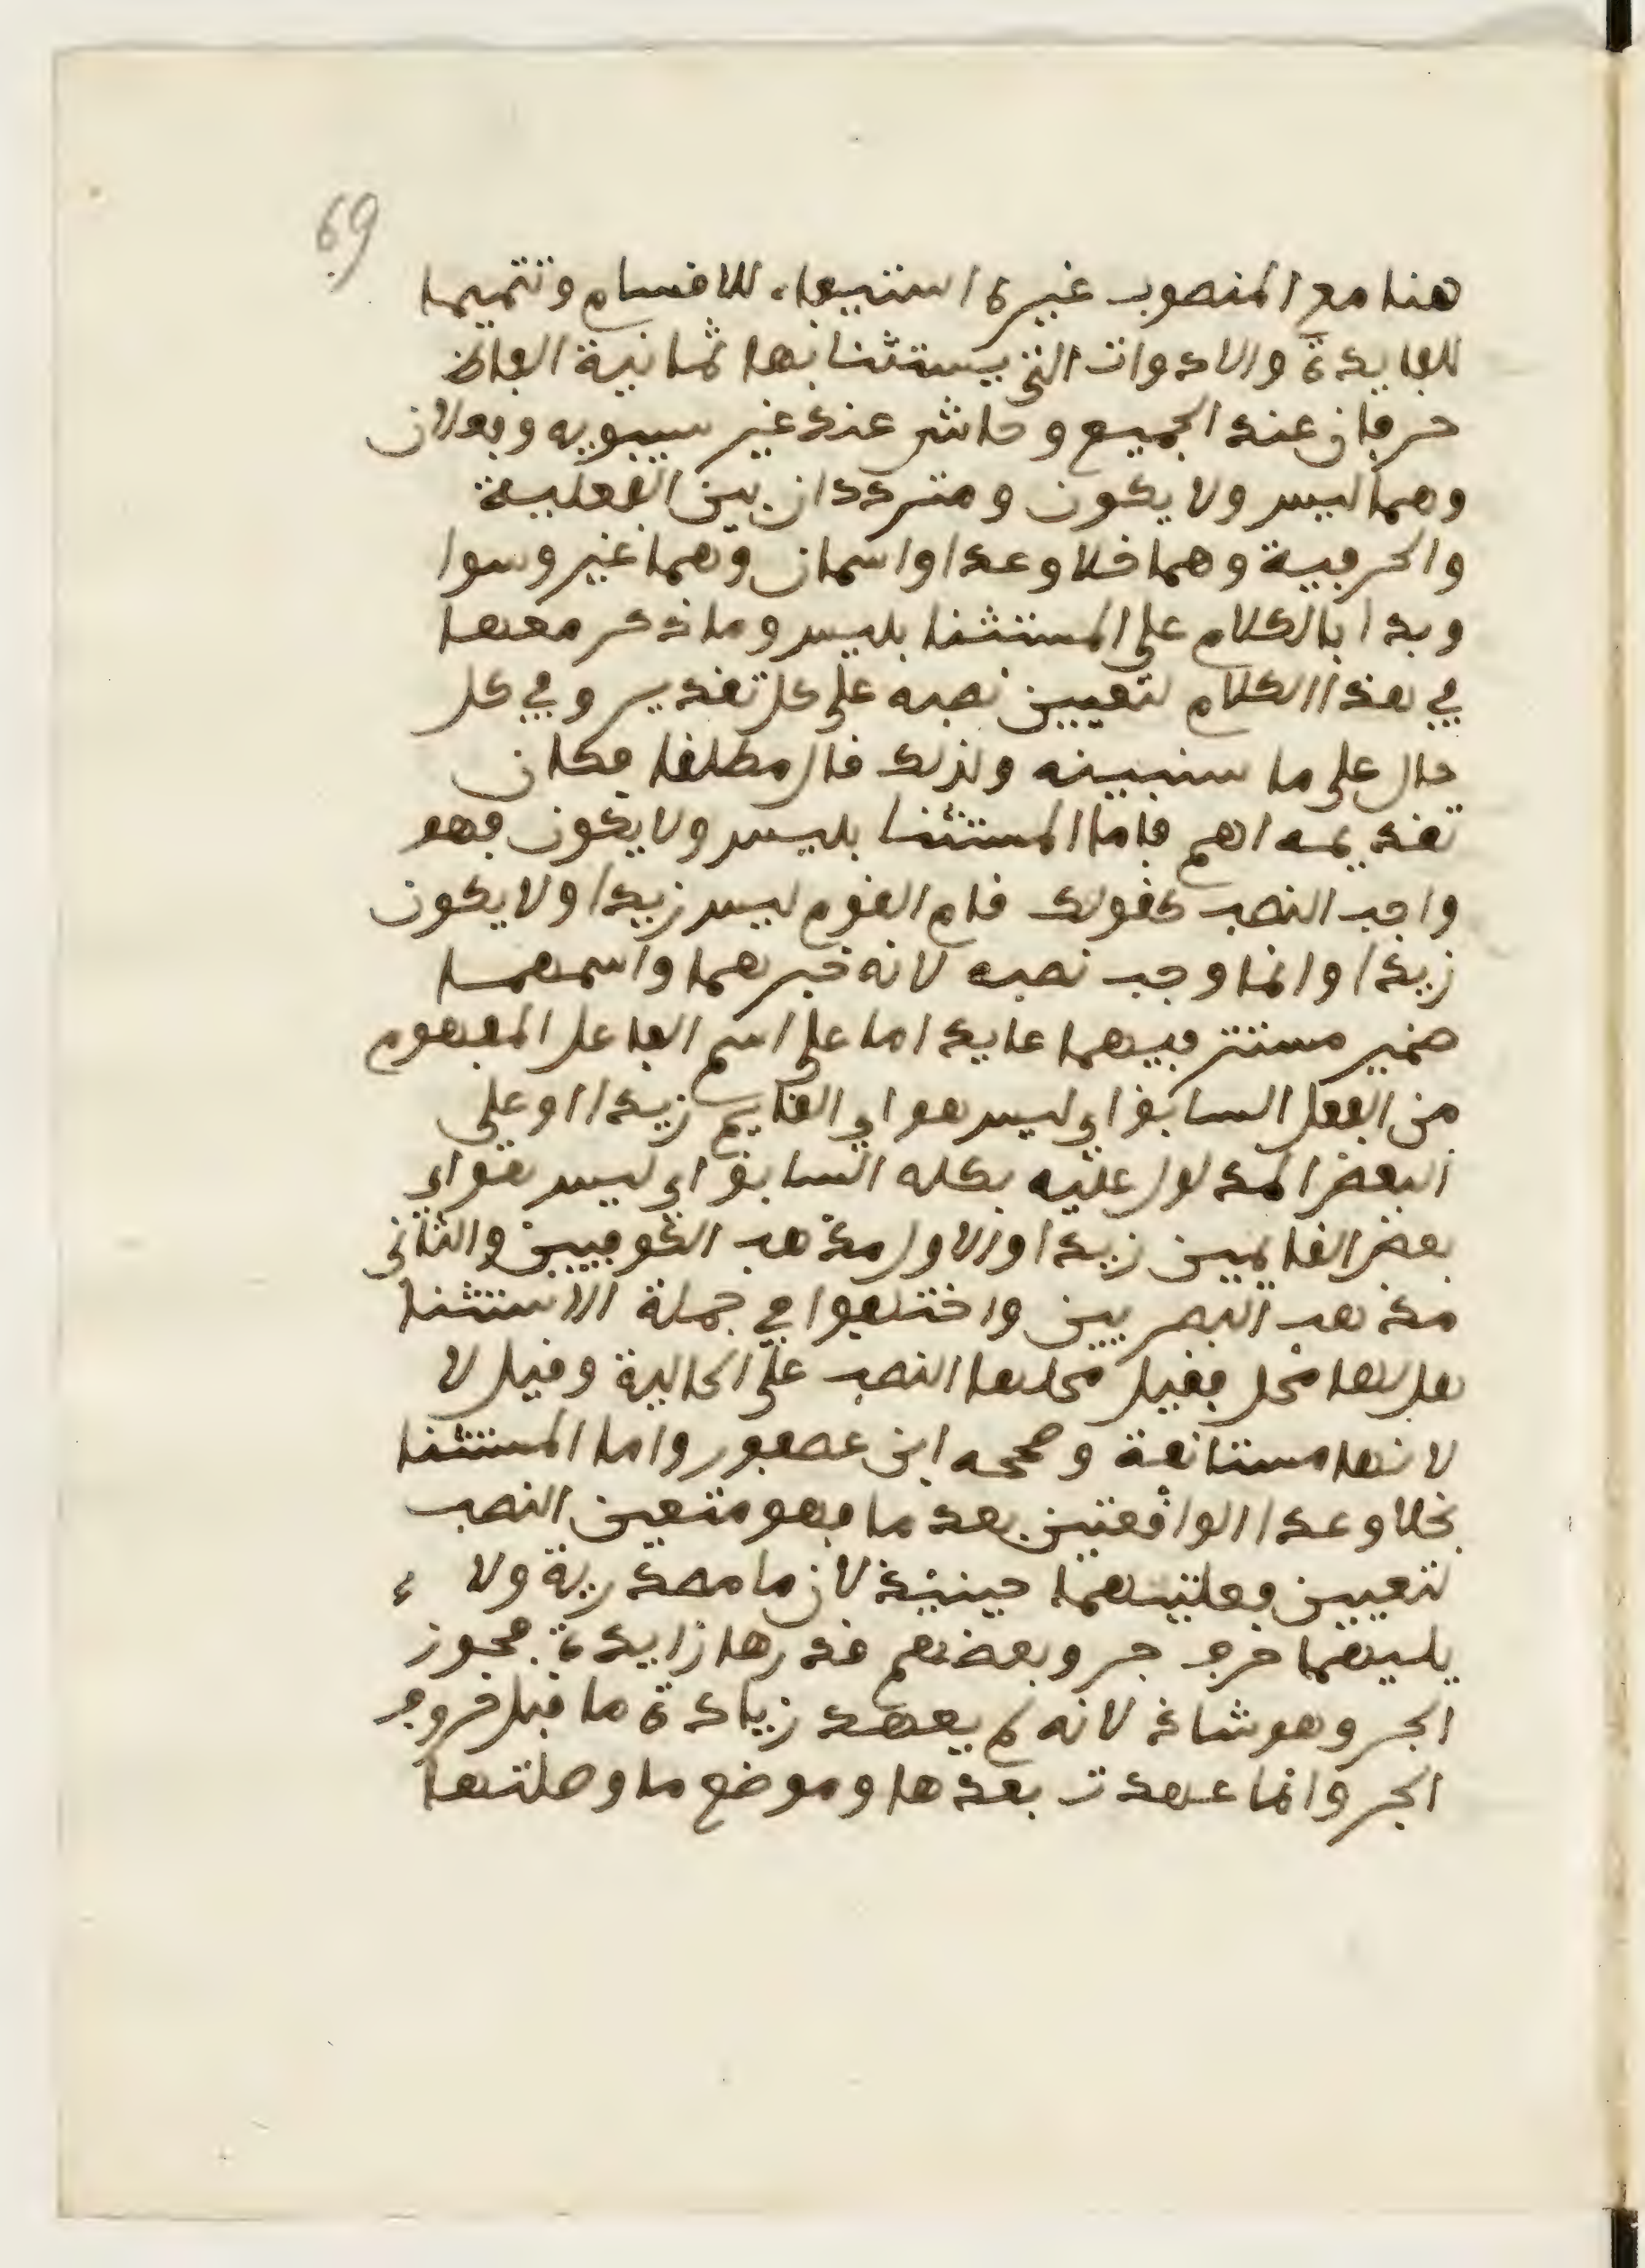 69
هنا مع المنصوب غيره استيفاء للاقسام وتتميما
للفايدة والادوات التي يستثنا بها ثمانية الفاظ
حرفان عند الجميع وحاشى عند غير سيبويه وفعلان
وهما ليس ولا يكون ومترددان بين الفعلية
والحرفية وهما خلا وعدا واسمان وهما غير وسوا
وبدا بالكلام على المستثنا بليس وما ذكر معها
في هذا الكلام لتعيين نصبه على كل تقدير وفي كل
حال على ما سنبينه ولذلك قال مطلقا فكان
تقديمه اهم فاما المستثنا بليس ولا يكون فهو
واجب النصب كقولك قام القوم ليس زيدا ولا يكون
زيدا وانما وجب نصبه لانه خبرهما واسمهما
ضمير مستتر فيهما عايد اما على اسم الفاعل المفهوم
من الفعل السابق اي ليس هو اي القايم زيدا او على
البعض المدلول عليه بكله السابق اي ليس هو اي
بعض القايمين زيدا والاول مذهب الكوفيين والثاني
مذهب البصريين واختلفوا في جملة الاستثنا
هل لها محل فقيل محلها النصب على الحالية وقيل لا
لانها مستانفة وصححه ابن عصفور واما المستثنا
بخلا وعدا الواقعتين بعد ما فهو متعين النصب
لتعيين فعليتهما حينيذ لان ما مصدرية ولا
يليهما حرف جر وبعضهم قدرها زايدة فجوز
الجر وهو شاذ لانه لم يعهد زيادة ما قبل حروف
الجر وانما عهدت بعدها وموضع ما وصلتها